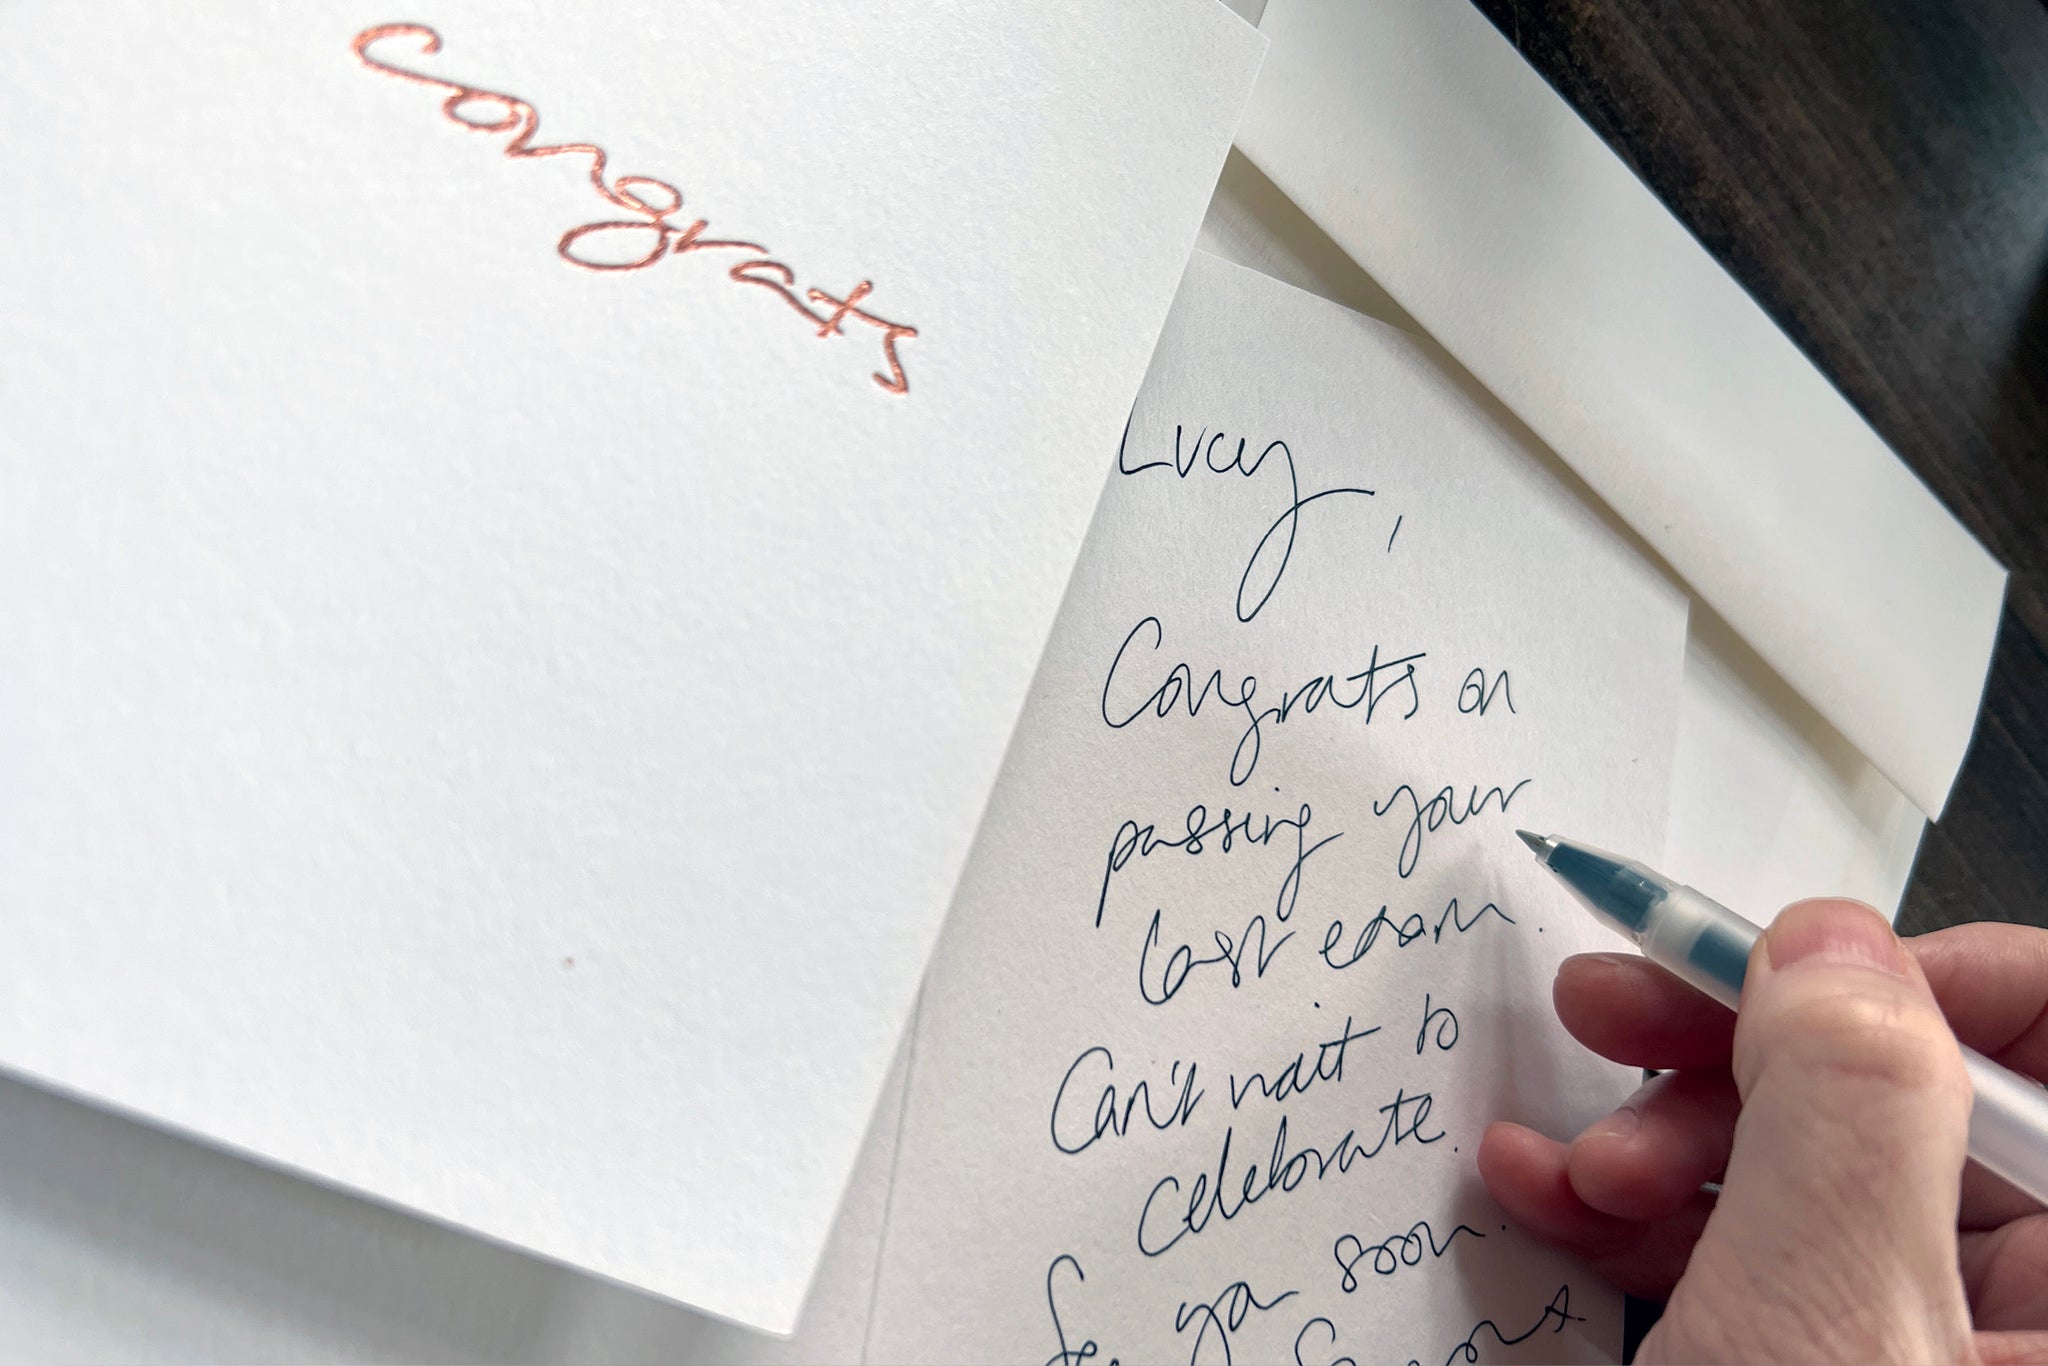 congrats
Lucy,
Congrats on
passing your
last exam.
Can't wait to
celebrate.
See you soon.